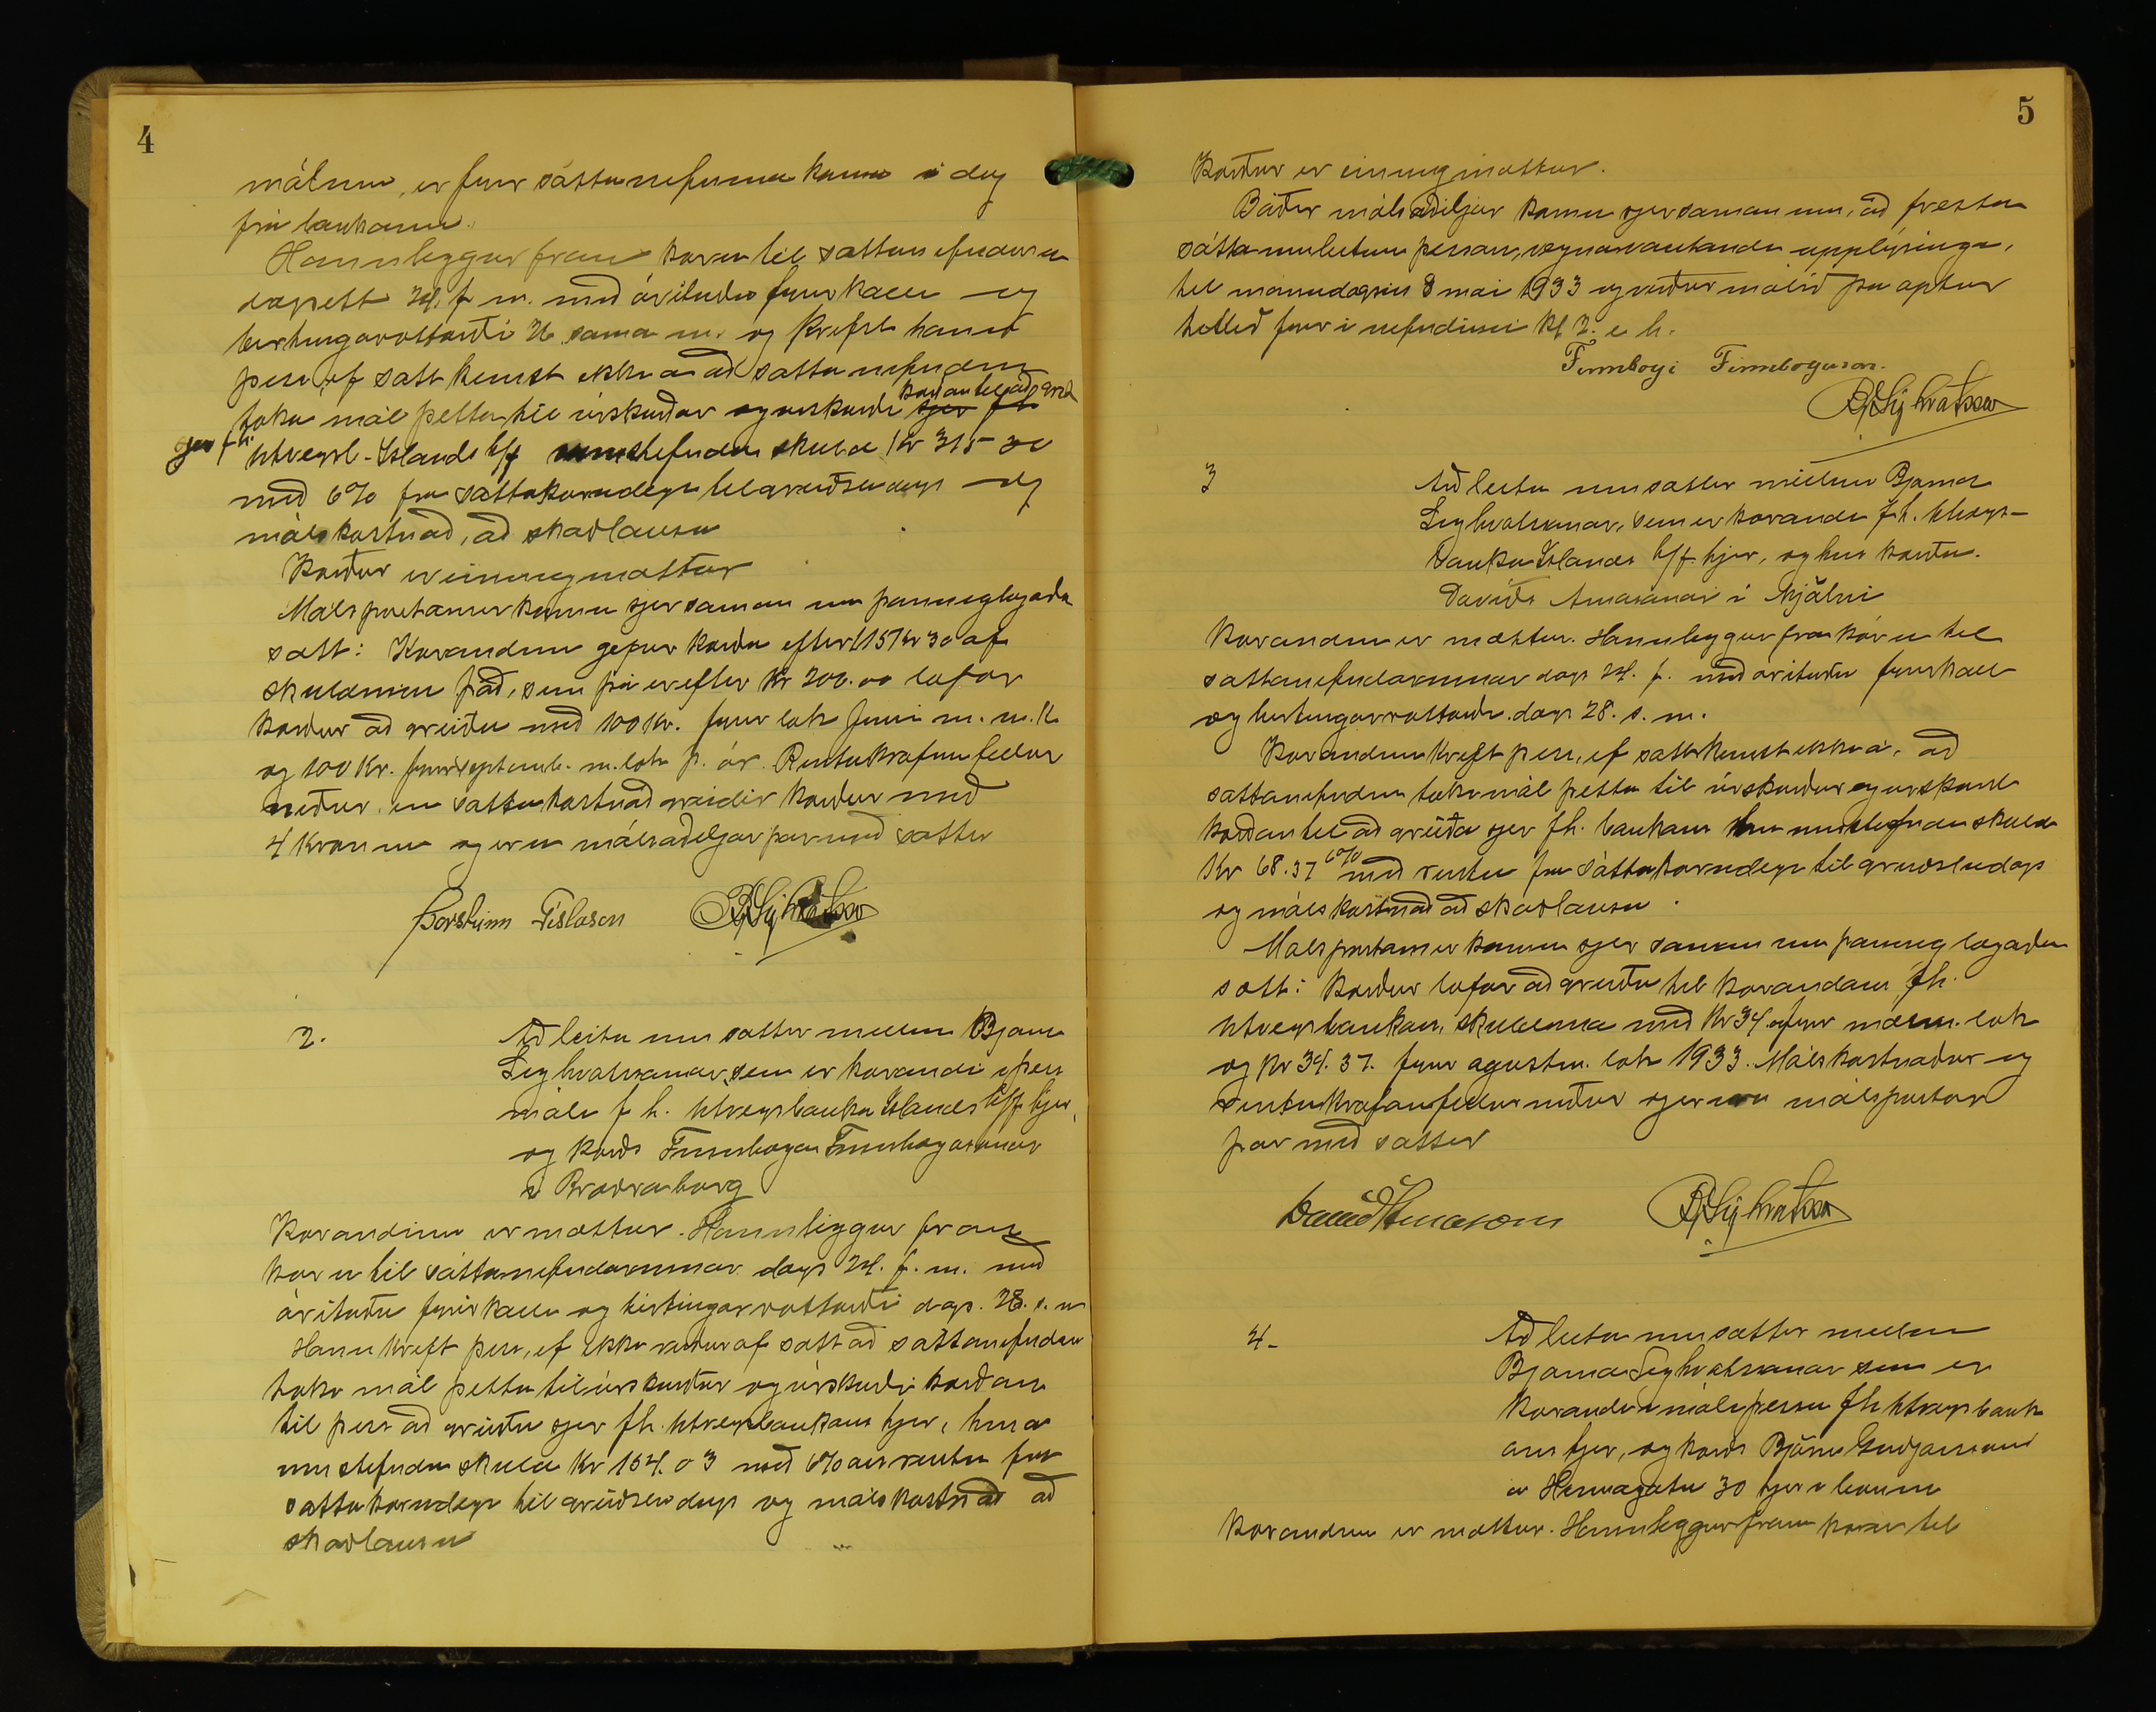 4
málum, er fyrir sáttanefndina koma í dag
frá bankanum.
Hann leggur fram kæru til sáttanefndarinnar
dagsett 24. f m. með árituðu fyrirkalli og
birtingarvottorði 26 sama m. og krefst hann
þess, ef sátt kemst ekki á að sáttanefndin
taki mál þetta til úrskurðar og úrskurði kærðan til að greiða
sjer fh Útvegsb. Íslands h/f umstefnda skuld Kr 315-30
með 6% frá sáttakærudegi til greiðsludags og
málskostnað, að skaðlausu
Kærður er einnig mættur
Málspartarnir komu sjer saman um þannig lagaða
sátt: Kærandinn gefur kærða eftir 115 kr 30 af
skuldinni það, sem þá er eftir Kr 200.00 lofar
kærður að greiða með 100 Kr. fyrir lok júni m. n.k.
og 100 Kr. fyrir septemb. m. lok þ. ár. Rentukrafan fellur
niður, en sáttakostnað greiðir kærður með
4 krónum og eru málsaðiljar þar með sáttir
Þorsteinn Gíslason BSighvatsson
2.
Að leita um sáttir millum Bjarna
Sighvatssonar, sem er kærandi í þessu
máli f h. Útvegsbanka Íslands h/f hjer,
og kærða Finnboga Finnbogasonar
í Bræðraborg
Kærandinn er mættur. Hann leggur fram
kæru til sáttanefndarinnar dags 24. f. m. með
árituðu fyrirkalli og birtingarvottorði dags. 28. s. m
Hann krefst þess, ef ekki verður af sátt að sáttanefndin
taki mál þetta til úrskurðar og úrskurði kærðan
til þess að greiða sjer fh. Útvegsbankans hjer, hina
umstefndu skuld Kr 154.03 með 6% ars rentu frá
sáttakærudegi til greiðsludags og málskostnað að
skaðlausu
5
Kærður er einnig mættur.
Báðir málsaðiljar komu sjer saman um, að fresta
sáttaumleitun þessari, vegna vantandi upplýsinga,
til mánudagsins 8 mai 1933 og verður málið þá aptur
tekið fyrir í nefndinni kl 2. e h.
Finnbogi Finnbogason.
BSighvatsson
3
Að leita um sáttir millum Bjarna
Sighvatssonar, sem er kærandi f.h. Útvegs-
banka Íslands h/f. hjer, og hins kærða.
Davíðs Árnasonar í Hjálmi
Kærandinn er mættur. Hann leggur fram kæru til
sáttanefndarinnar dags 24. f. með árituðu fyrirkalli
og birtingarvottorði dags 28. s. m.
Kærandinn krefst þess, ef sátt kemst ekki á, að
sáttanefndin taki mál þetta til úrskurðar og úrskurði
kærðan til að greiða sjer fh. bankans hina umstefndu skuld
Kr 68.37 með 6% rentu frá sáttakærudegi til greiðsludags
og málskostnað að skaðlausu.
Málspartarnir komu sjer saman um þannig lagaða
sátt: Kærður lofar að greiða til kærandans fh.
Útvegsbankans, skuldina með Kr 34. fyrir lok
og Kr 34.37. fyrir agústm. lok 1933. Málskostnaður og
rentukrafan fellur niður og eru málspartar
þar með sáttir
Davíð Árnason BSighvatsson
4-
Að leita um sáttir millum
Bjarna Sighvatssonar sem er
kærandi í máli þessu fh Útvegsbank
ans hjer, og kærða Bjarna Guðjónssonar
á 30 hjer í bænum
Kærandinn er mættur. Hann leggur fram kæru til